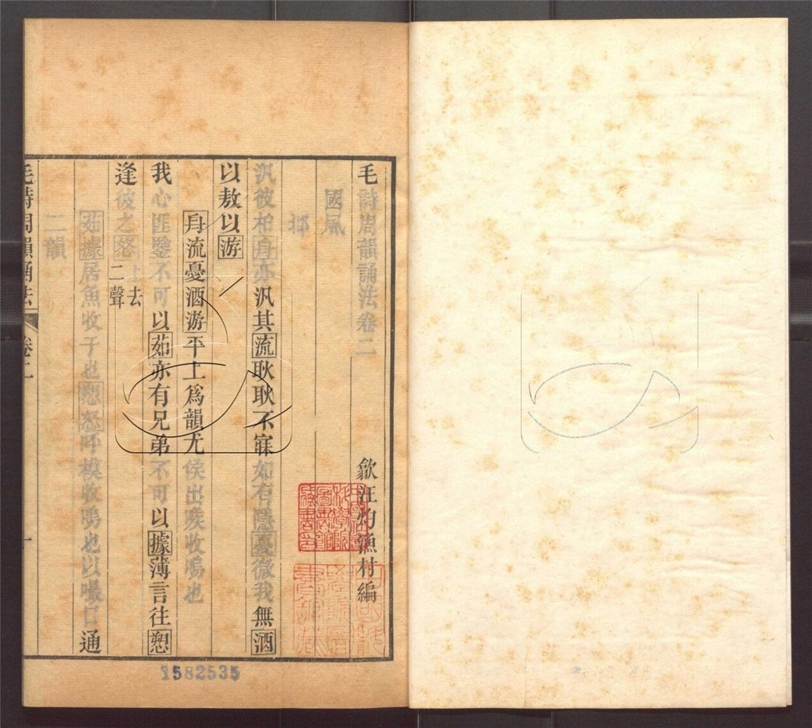 毛詩周韻誦法卷二
歙汪灼漁村編
國風
邶
汎彼柏舟亦汎其流耿耿不寐如有隱憂微我無酒
以敖以游
舟流憂酒游平上爲韻尤侯出喉收嗚也
我心匪鑒不可以茹亦有兄弟不可以據薄言往愬
逢彼之怒上去二聲
茹據居魚收于也愬怒呼模收嗚也以嘬口通
二韻
毛詩周韻誦法 卷二 一
1582535